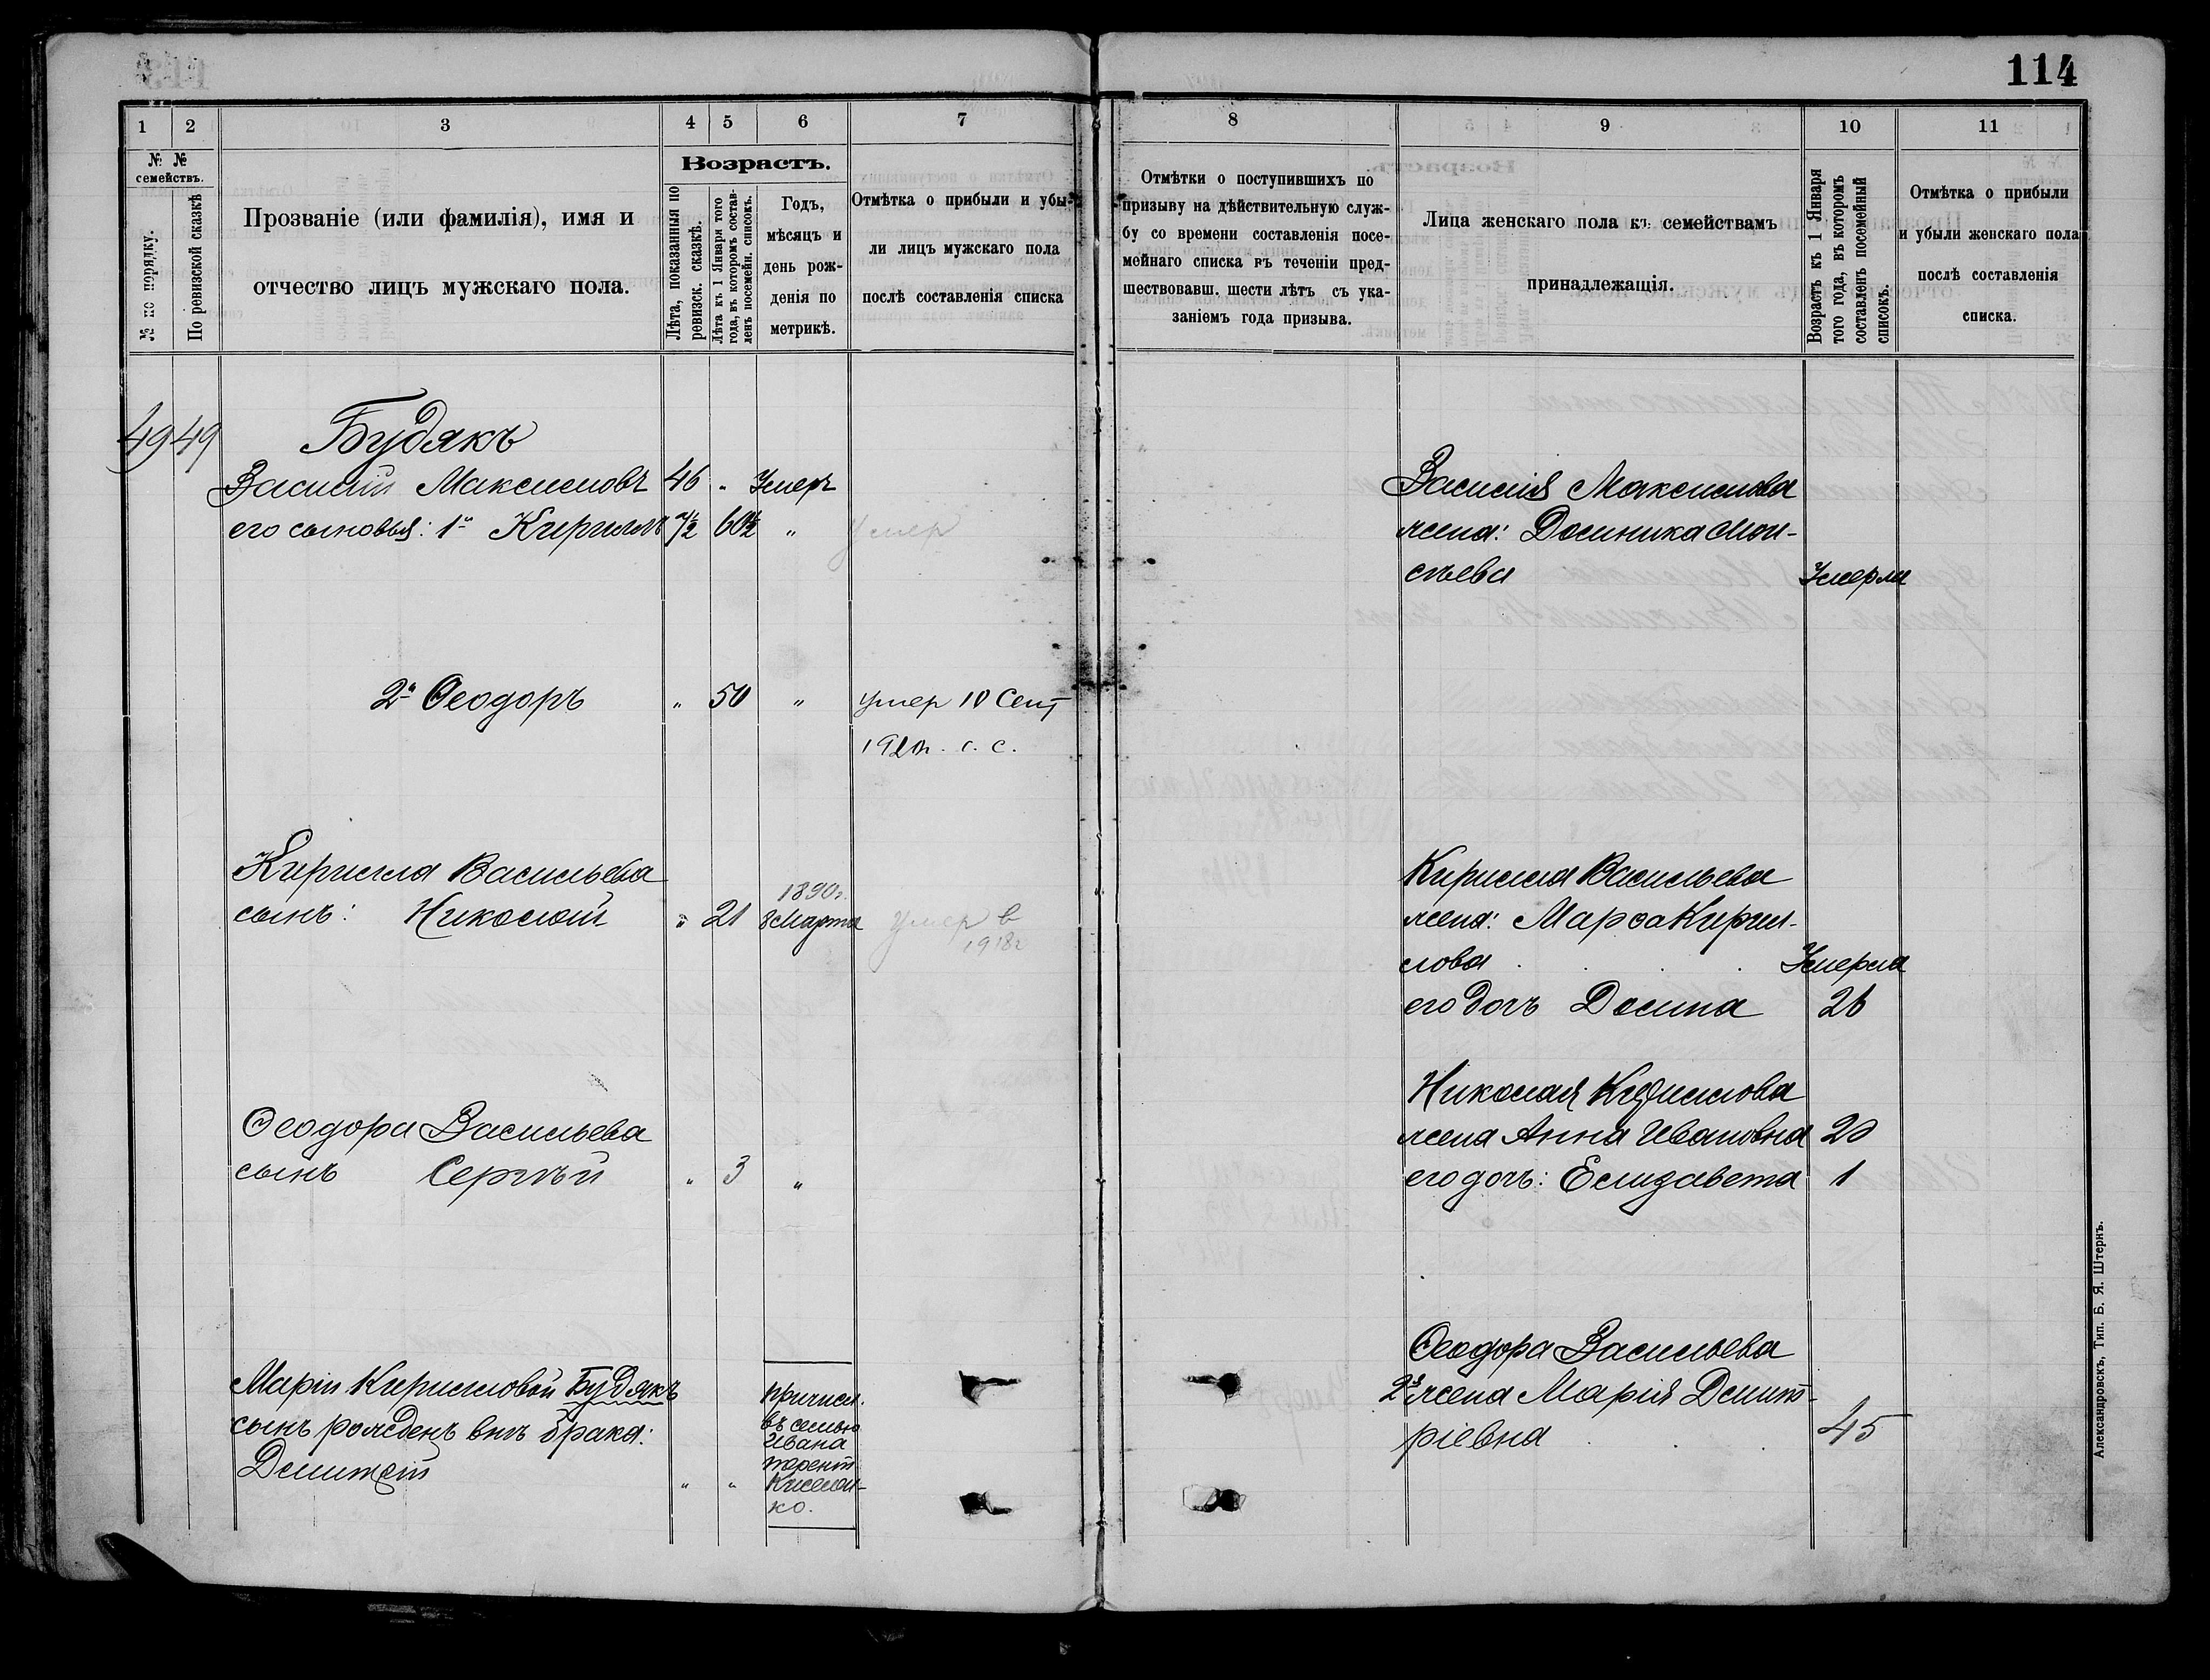 114
1
2
3
4
5
6
7
8
9
10
11
№ № семействъ.
№ по порядку.
По ревизской сказкѣ
Прозваніе (или фамилія), имя и
отчество лицъ мужскаго пола.
Возрастъ.
Лѣта, показанныя по
ревизск. сказкѣ.
Лѣта къ 1 Января того
года, въ которомъ состав-
ленъ посемейн. списокъ.
Годъ,
мѣсяцъ и
день рож-
денія по
метрикѣ.
Отмѣтка о прибыли и убы-
ли лицъ мужскаго пола
послѣ составленія списка
Отмѣтки о поступившихъ по
призыву на дѣйствительную служ-
бу со времени составленія посе-
мейнаго списка въ теченіи пред-
шествовавш. шести лѣтъ съ ука-
заніемъ года призыва.
Лица женскаго пола къ семействамъ
принадлежащія.
Возрастъ къ 1 Января
того года, въ которомъ
составленъ посемейный
списокъ.
Отмѣтка о прибыли
и убыли женскаго пола
послѣ составленія
списка.
49 49 Будякъ
Василій Максимовъ 46 " Умеръ
его сыновья: 1й Кириллъ 7½ 60½ " умер
2й Ѳеодоръ " 50 " умер 10 Сент
1920г. с. с.
Кирилла Васильева
сынъ: Николай " 21 1890г.
8 Марта умер в
1918г
Ѳеодора Васильева
сынъ Сергѣй " 3 "
Маріи Кирилловой Будякъ
сынъ рожденъ внѣ брака:
Димитрій " "
причисл.
въ семью
Ивана
Терент.
ко.
Василія Максимова
жена: Домникa Мои-
сѣева Умерла
Кирилла Васильева
жена: Марѳа Кирил-
лова Умерла
его дочь Домна 26
Николая Кириллова
жена Анна Ивановна 20
его дочь: Елизавета 1
Ѳеодора Васильева
2я жена Марія Димит-
ріевна 45
Александровскъ, Тип. Б. Я. Штернъ.